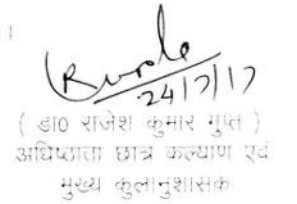 24/7/17
( डा0 राजेश कुमार गुप्त )
अधिष्ठाता छात्र कल्याण एवं
मुख्य कुलानुशासक